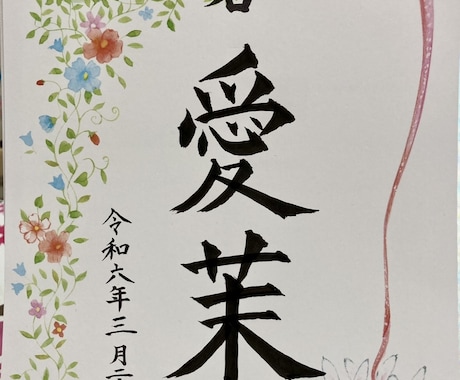 名 愛茉
令和六年三月二